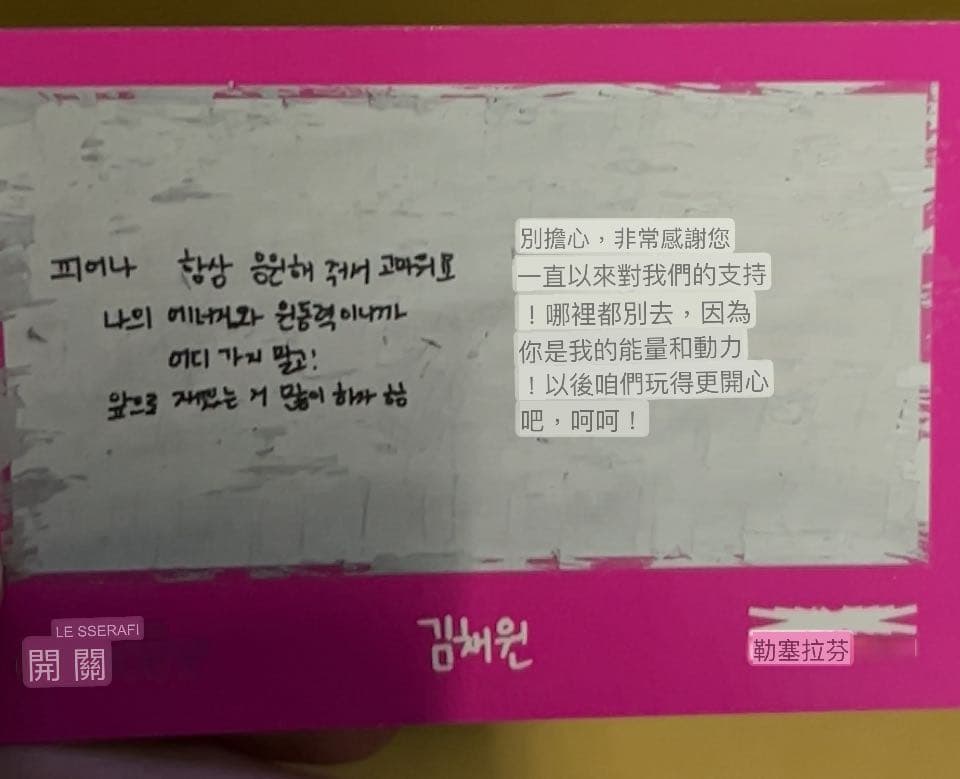 피어나 항상 응원해 줘서 고마워요
나의 에너지와 원동력이니까
어디 가지 말고!
앞으로 재밌는 거 많이 하자 헤헤
別擔心，非常感謝您
一直以來對我們的支持
！哪裡都別去，因為
你是我的能量和動力
！以後咱們玩得更開心
吧，呵呵！
LE SSERAFI
開 關
김채원
勒塞拉芬